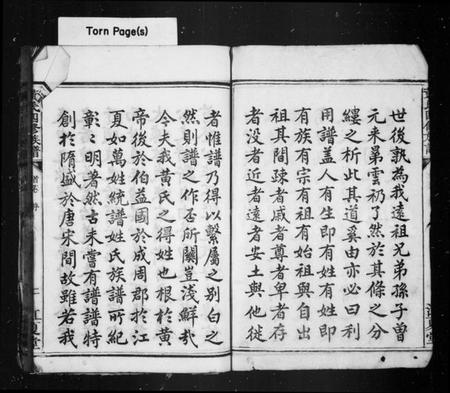 Torn Page(s)
世後孰為我遠祖兄弟孫子曾
元來弟雲礽了然於其條之分
縷之析此其道奚由亦必曰利
用譜蓋人有生即有姓有姓即
有族有宗有祖有始祖與自出
祖其間疎者戚者尊者卑者存
者没者近者遠者安土與他徙
者惟譜乃得以繫屬之别白之
然則譜之作否所關豈淺鮮哉
今夫我黃氏之得姓也根於黃
帝後於伯益國於成周郡於江
夏如萬姓統譜姓氏族譜所紀
彰彰明著然古未嘗有譜譜特
創於隋盛於唐宋間故雖若我
江夏堂